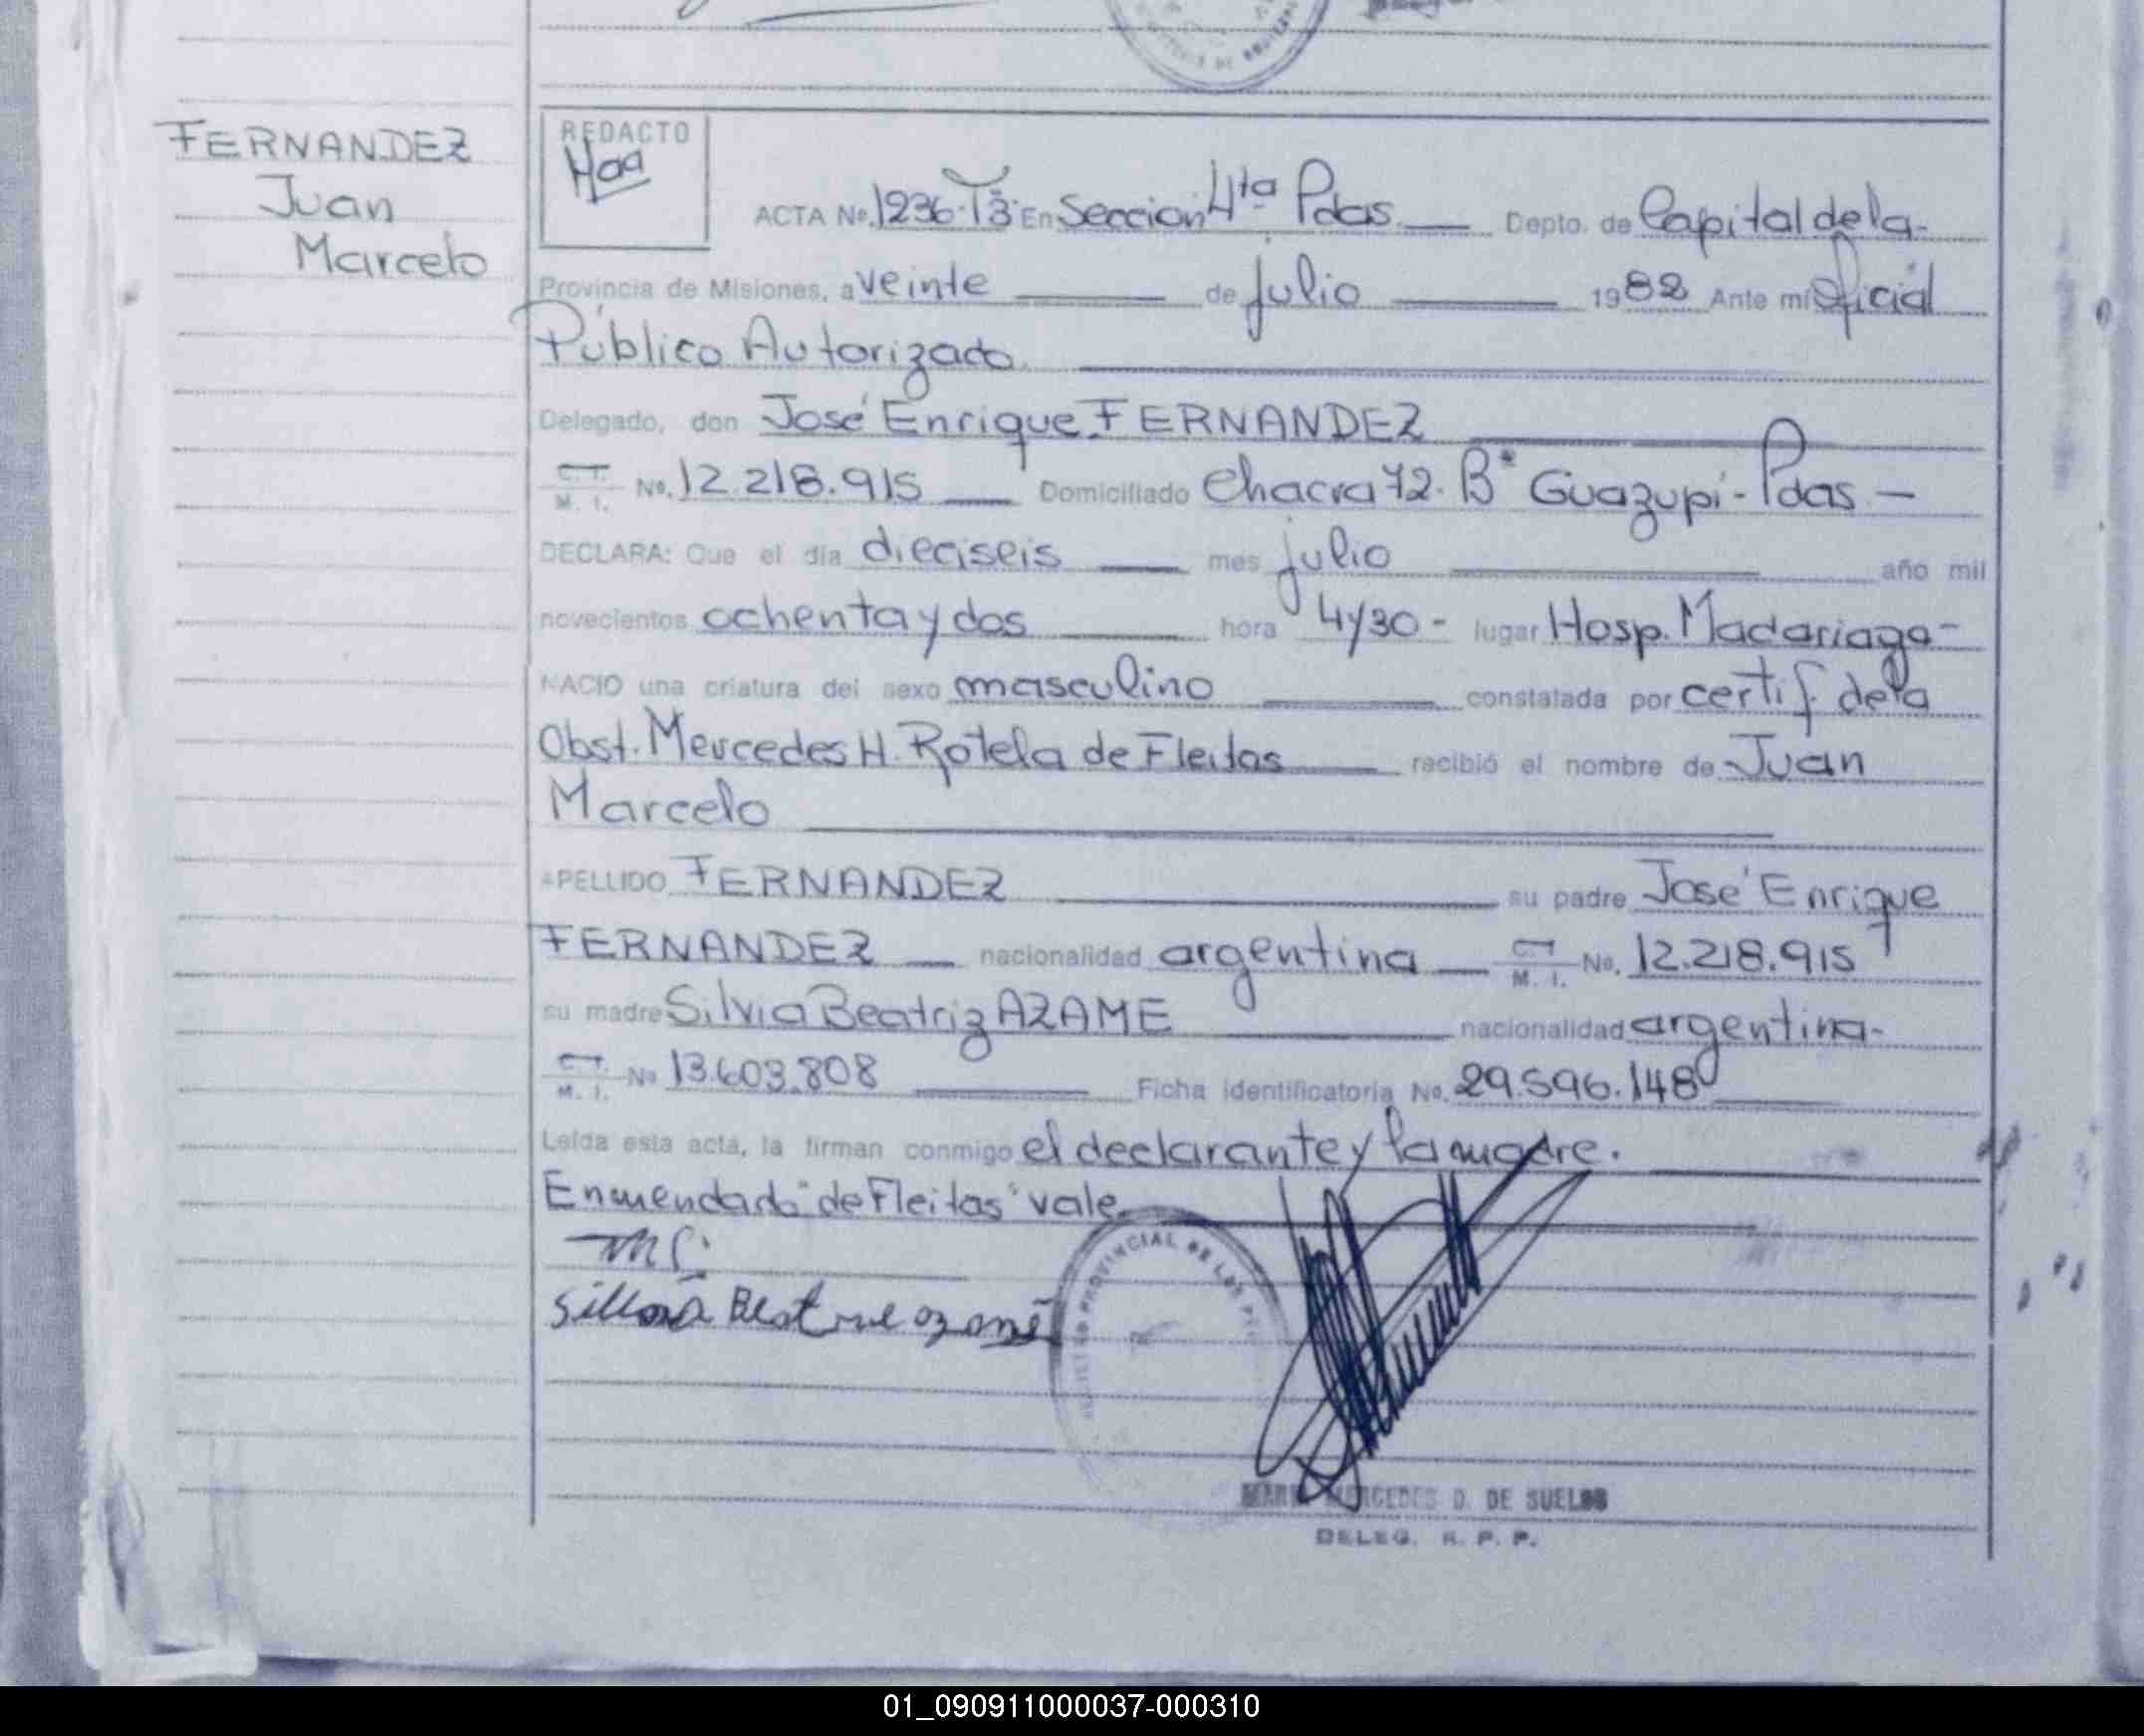 FERNANDEZ
Juan
Marcelo
REDACTO
ACTA No. 1236-T3º En Sección 4ta Pdas. Depto. de Capital de la
Provincia de Misiones, a veinte de julio 1982 Ante mí Oficial
Público Autorizado.
Delegado, don José Enrique FERNANDEZ
C.I. M. I. No. 12.218.915 Domiciliado Chacra 72. Bº Guazupi - Pdas -
DECLARA: Que el día dieciseis mes julio año mil
novecientos ochenta y dos hora 4y30 - lugar Hosp. Madariaga -
NACIO una criatura del sexo masculino constatada por certif. de la
Obst. Mercedes H. Rotela de Fleitas recibió el nombre de Juan
Marcelo
APELLIDO FERNANDEZ su padre José Enrique
FERNANDEZ nacionalidad argentina C.I. M. I. No. 12.218.915
su madre Silvia Beatriz AZAME nacionalidad argentina -
C.I. M. I. No 13.603.808 Ficha identificatoria No. 29.596.148
Leída esta acta, la firman conmigo el declarante y la madre.
Enmendado "de Fleitas" vale.
REGISTRO PROVINCIAL DE LAS PER
MERCEDES D. DE SUELDO
DELEG. R. P. P.
01_090911000037-000310